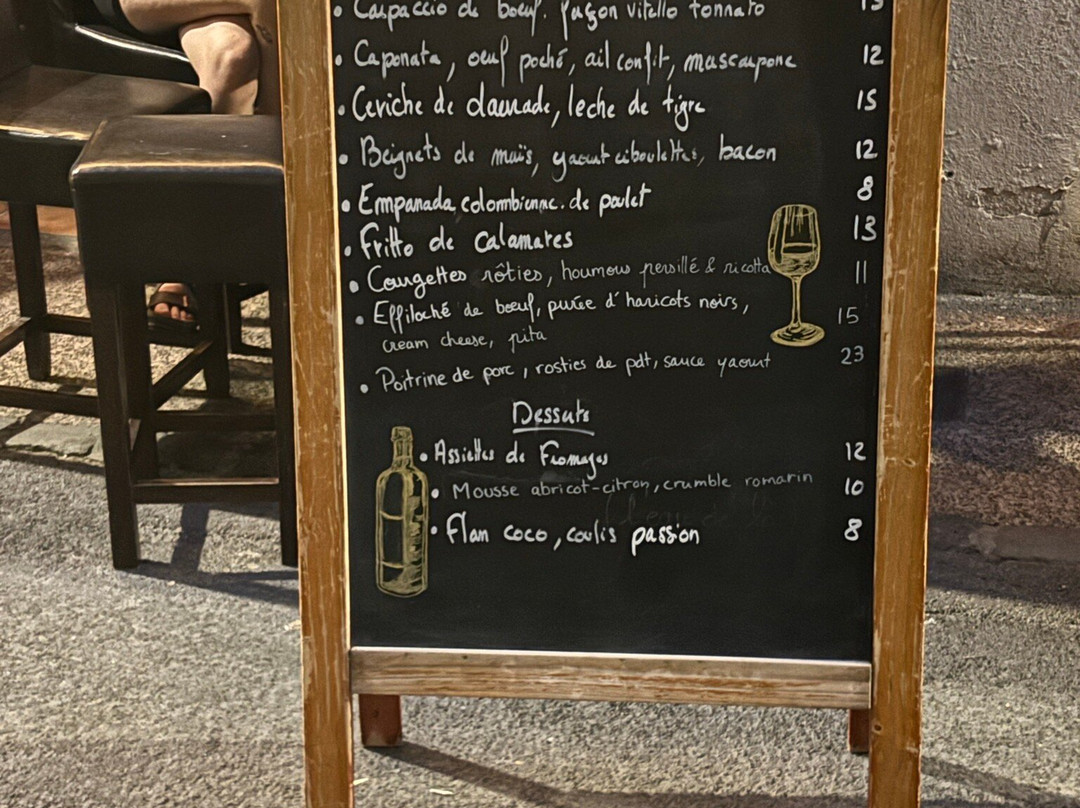 • Carpaccio de boeuf, façon vitello tonnato 13
• Caponata, oeuf poché, ail confit, mascarpone 12
• Ceviche de daurade, leche de tigre 15
• Beignets de maïs, yaourt ciboulettes, bacon 12
• Empanada colombienne de poulet 8
• Fritto de calamares 13
• Courgettes rôties, houmous persillé & ricotta 11
• Effiloché de boeuf, purée d'haricots noirs, 15
cream cheese, pita
• Poitrine de porc, rosties de pdt, sauce yaourt 23
Desserts
• Assiettes de Fromages 12
• Mousse abricot-citron, crumble romarin 10
• Flan coco, coulis passion 8